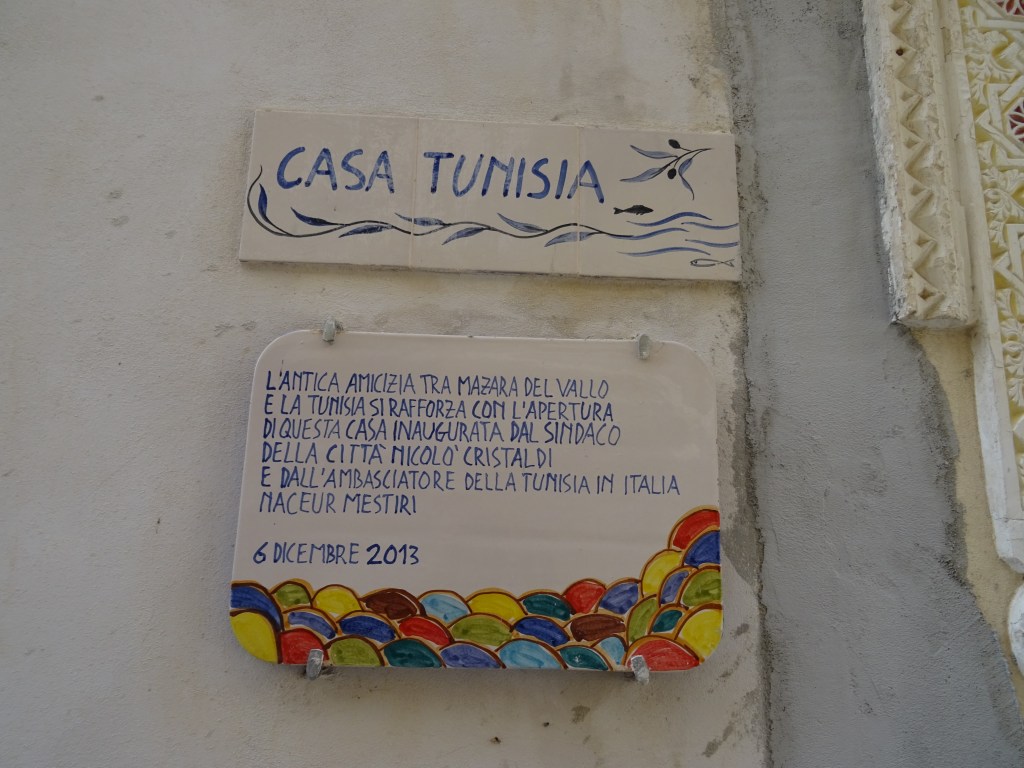 CASA TUNISIA
L'ANTICA AMICIZIA TRA MAZARA DEL VALLO
E LA TUNISIA SI RAFFORZA CON L'APERTURA
DI QUESTA CASA INAUGURATA DAL SINDACO
DELLA CITTÀ NICOLO' CRISTALDI
E DALL'AMBASCIATORE DELLA TUNISIA IN ITALIA
NACEUR MESTIRI
6 DICEMBRE 2013